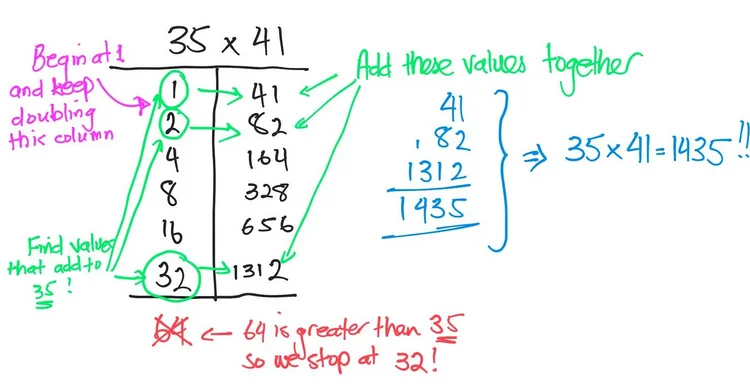 35 x 41
Begin at 1
and keep
doubling
this column
1 41
2 82
4 164
8 328
16 656
32 1312
64
Find values
that add to
35 !
Add these values together
41
82
1312
1435
⇒ 35 x 41 = 1435 !!
← 64 is greater than 35
so we stop at 32!